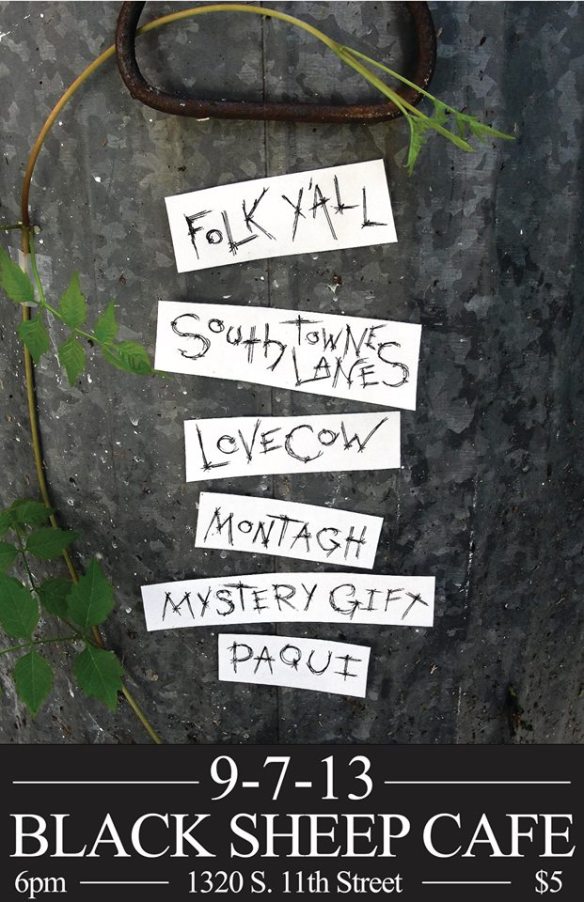 FOLK Y'ALL
SOUTH TOWNE
LANES
LOVECOW
MONTAGH
MYSTERY GIFT
PAQUI
9-7-13
BLACK SHEEP CAFE
6pm 1320 S. 11th Street $5